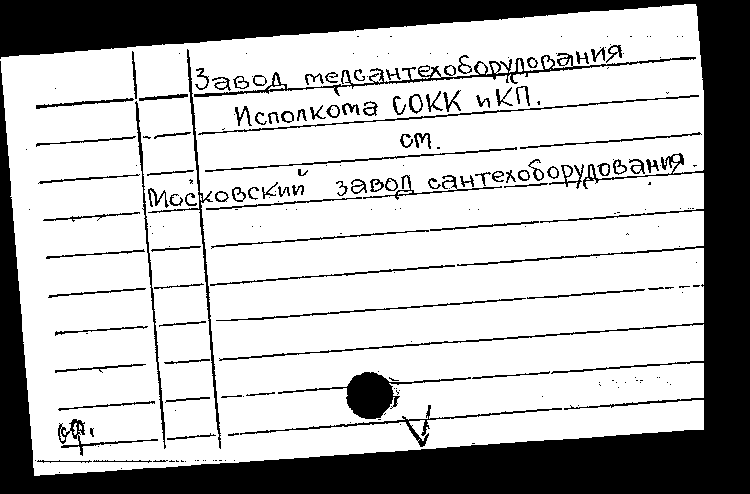 Завод медсантехоборудования
Исполкома СОКК и КП.
см.
Московский завод сантехоборудования.